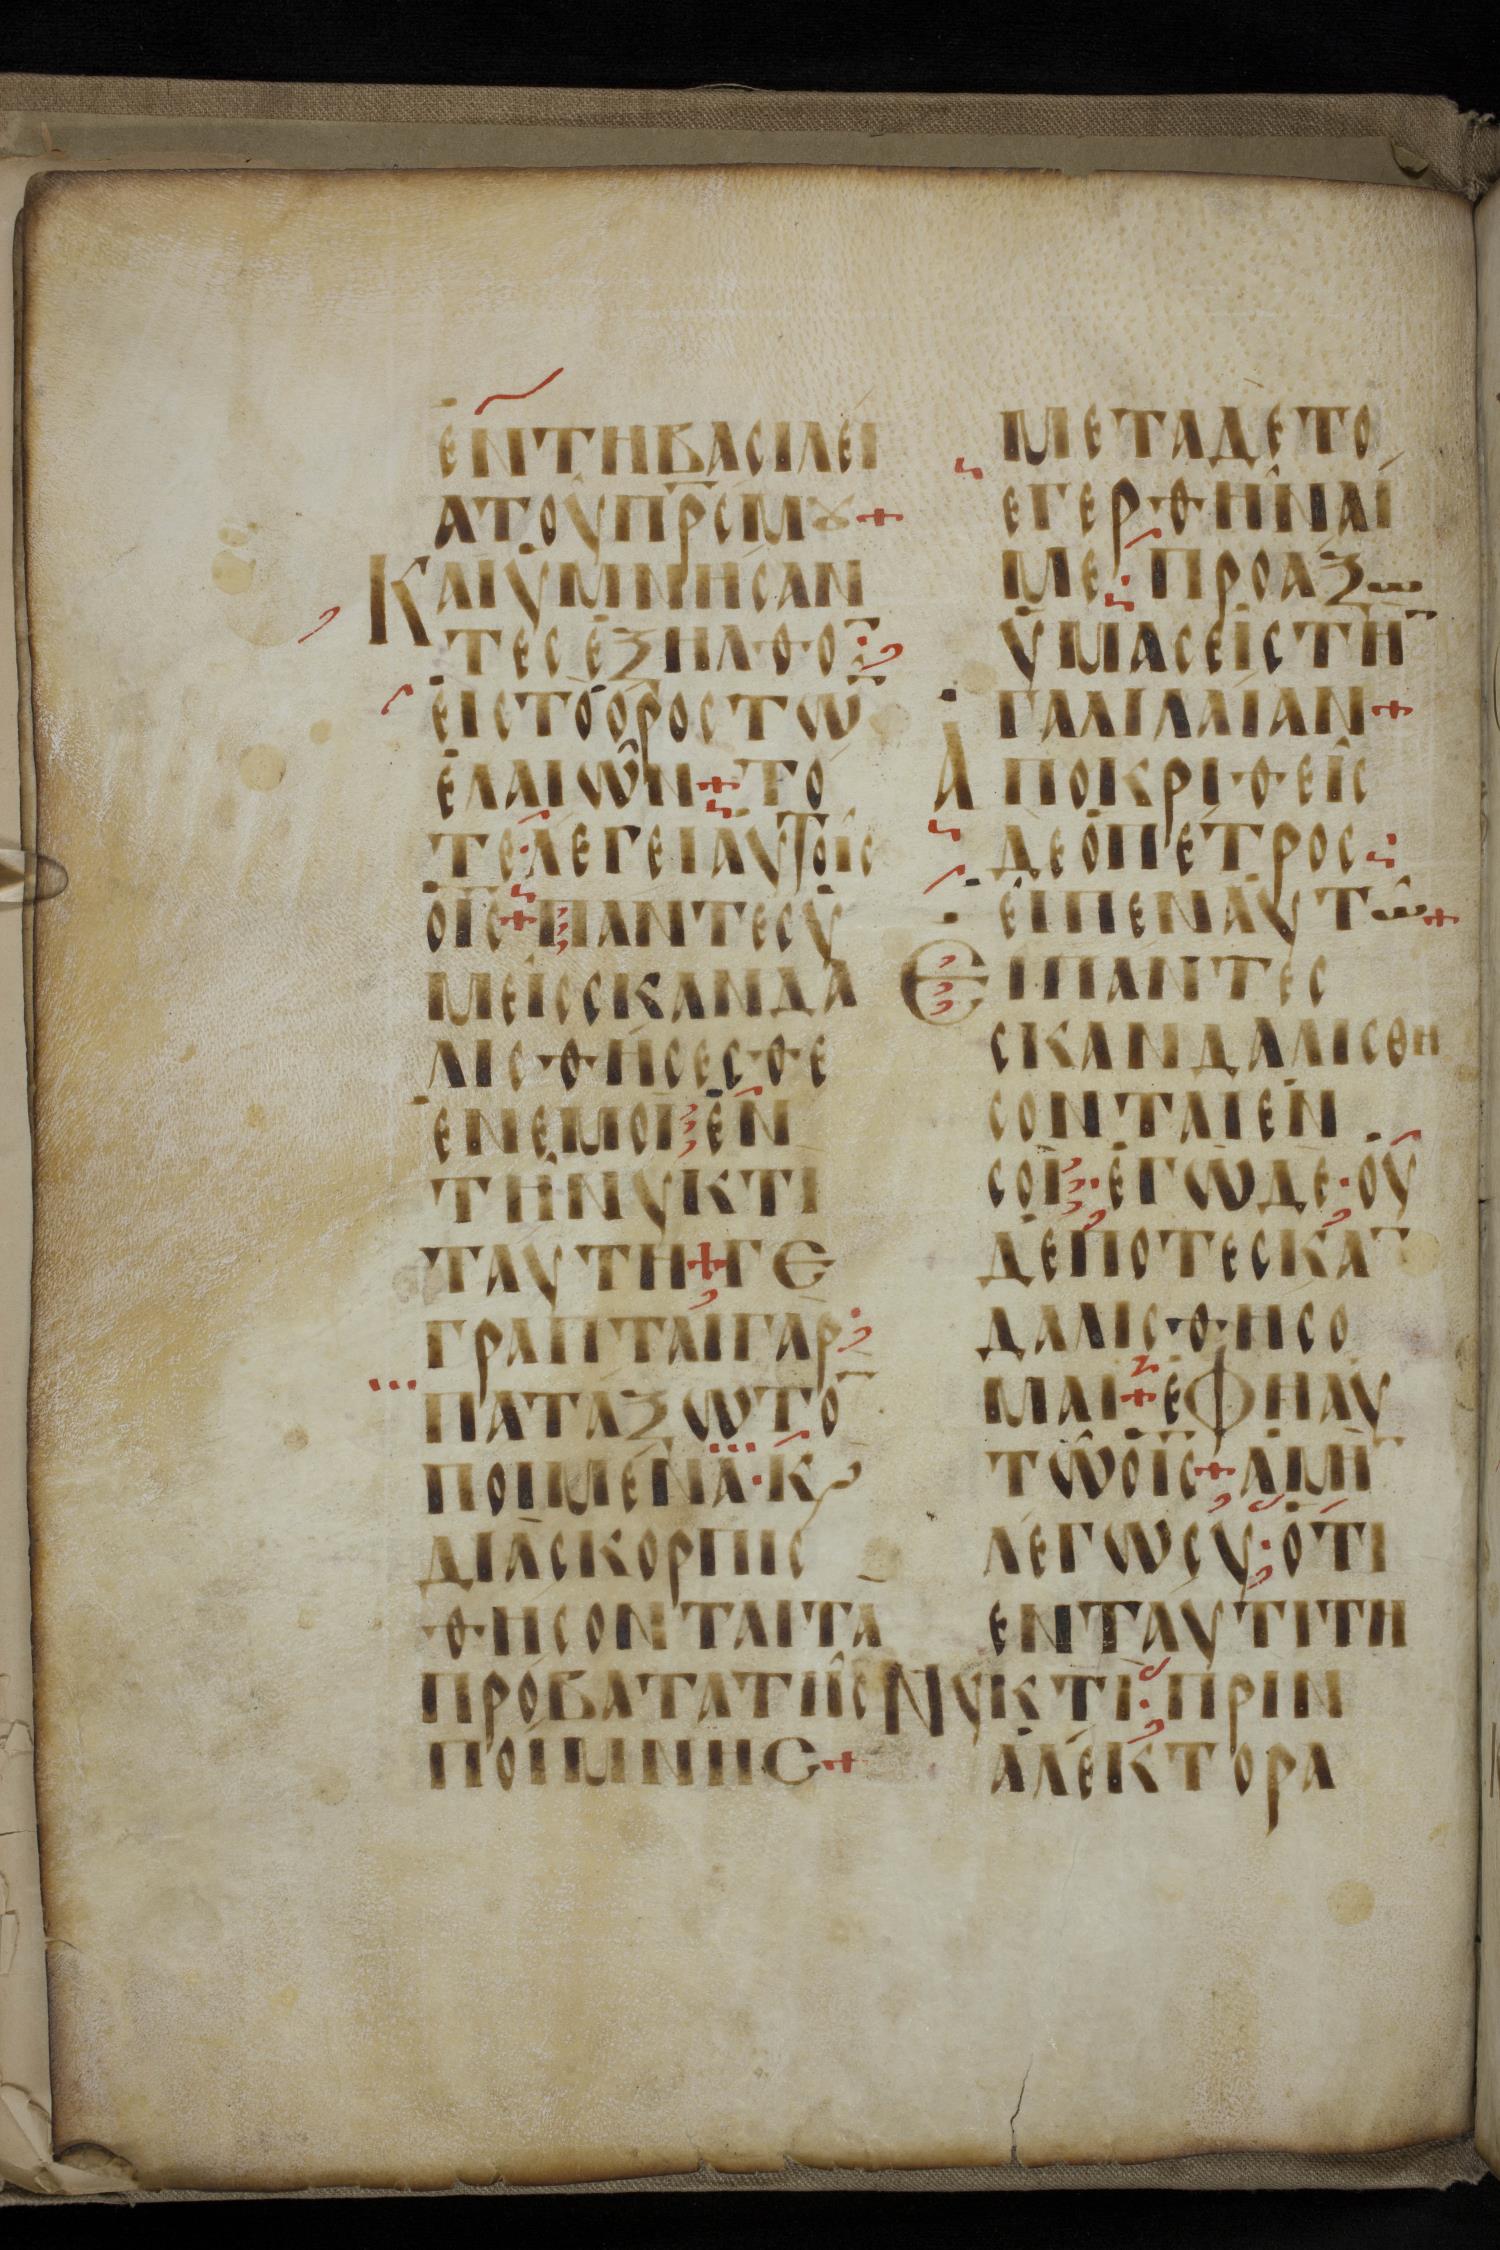 ΕΝΤΗΒΑCΙΛΕΙ
ΑΤΟΥΠΡ̅CΜȢ+
ΚΑΙΫΜΝΗCΑΝ
ΤΕCΕΞΗΛΘΟ̅:
ΕΙCΤΟΟΡΟCΤΩ̅
ΕΛΑΙΩΝ+ΤΟ
ΤΕ·ΛΕΓΕΙΑΥΤΟΙC
ΟΙ̅C+ΠΑΝΤΕCΫ
ΜΕΙCCΚΑΝΔΑ
ΛΙCΘΗCΕCΘΕ
ΕΝΕΜΟΙΕΝ
ΤΗΝΥΚΤΙ
ΤΑΥΤΗ+ΓΕ
ΓΡΑΠΤΑΙΓΑΡ:
ΠΑΤΑΞΩΤΟ̅
ΠΟΙΜΕΝΑ·Κ
ΔΙΑCΚΟΡΠΙC
ΘΗCΟΝΤΑΙΤΑ
ΠΡΟΒΑΤΑΤΗC
ΠΟΙΜΝΗC+
ΜΕΤΑΔΕΤΟ
ΕΓΕΡΘΗΝΑΙ
ΜΕ:ΠΡΟΑΞΩ
ΫΜΑCΕΙCΤΗ̅
ΓΑΛΙΛΑΙΑΝ+
ΑΠΟΚΡΙΘΕΙC
ΔΕΟΠΕΤΡΟC:
ΕΙΠΕΝΑΥΤΩ+
ΕΙΠΑΝΤΕC
CΚΑΝΔΑΛΙCΘΗ
CΟΝΤΑΙΕΝ
CΟΙ·ΕΓΩΔΕ·ΟΥ
ΔΕΠΟΤΕCΚΑ̅
ΔΑΛΙCΘΗCΟ
ΜΑΙ+ΕΦΗΑΥ
ΤΩΟΙ̅C+ΑΜΗ̅
ΛΕΓΩCΥ:ΟΤΙ
ΕΝΤΑΥΤΙΤΗ
ΝΥΚΤΙ:ΠΡΙΝ
ΑΛΕΚΤΟΡΑ